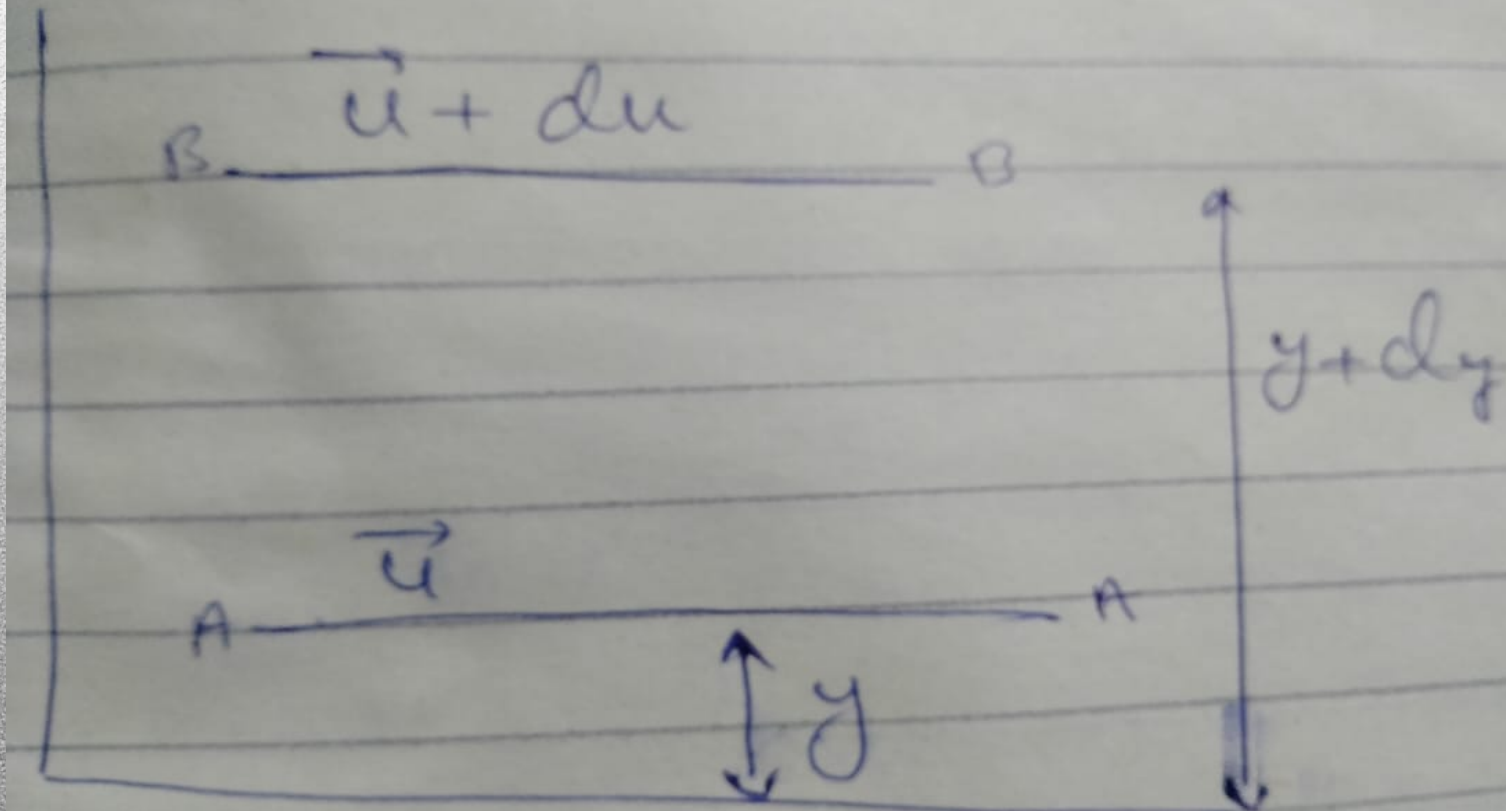 u + du
B B
y + dy
u
A A
y